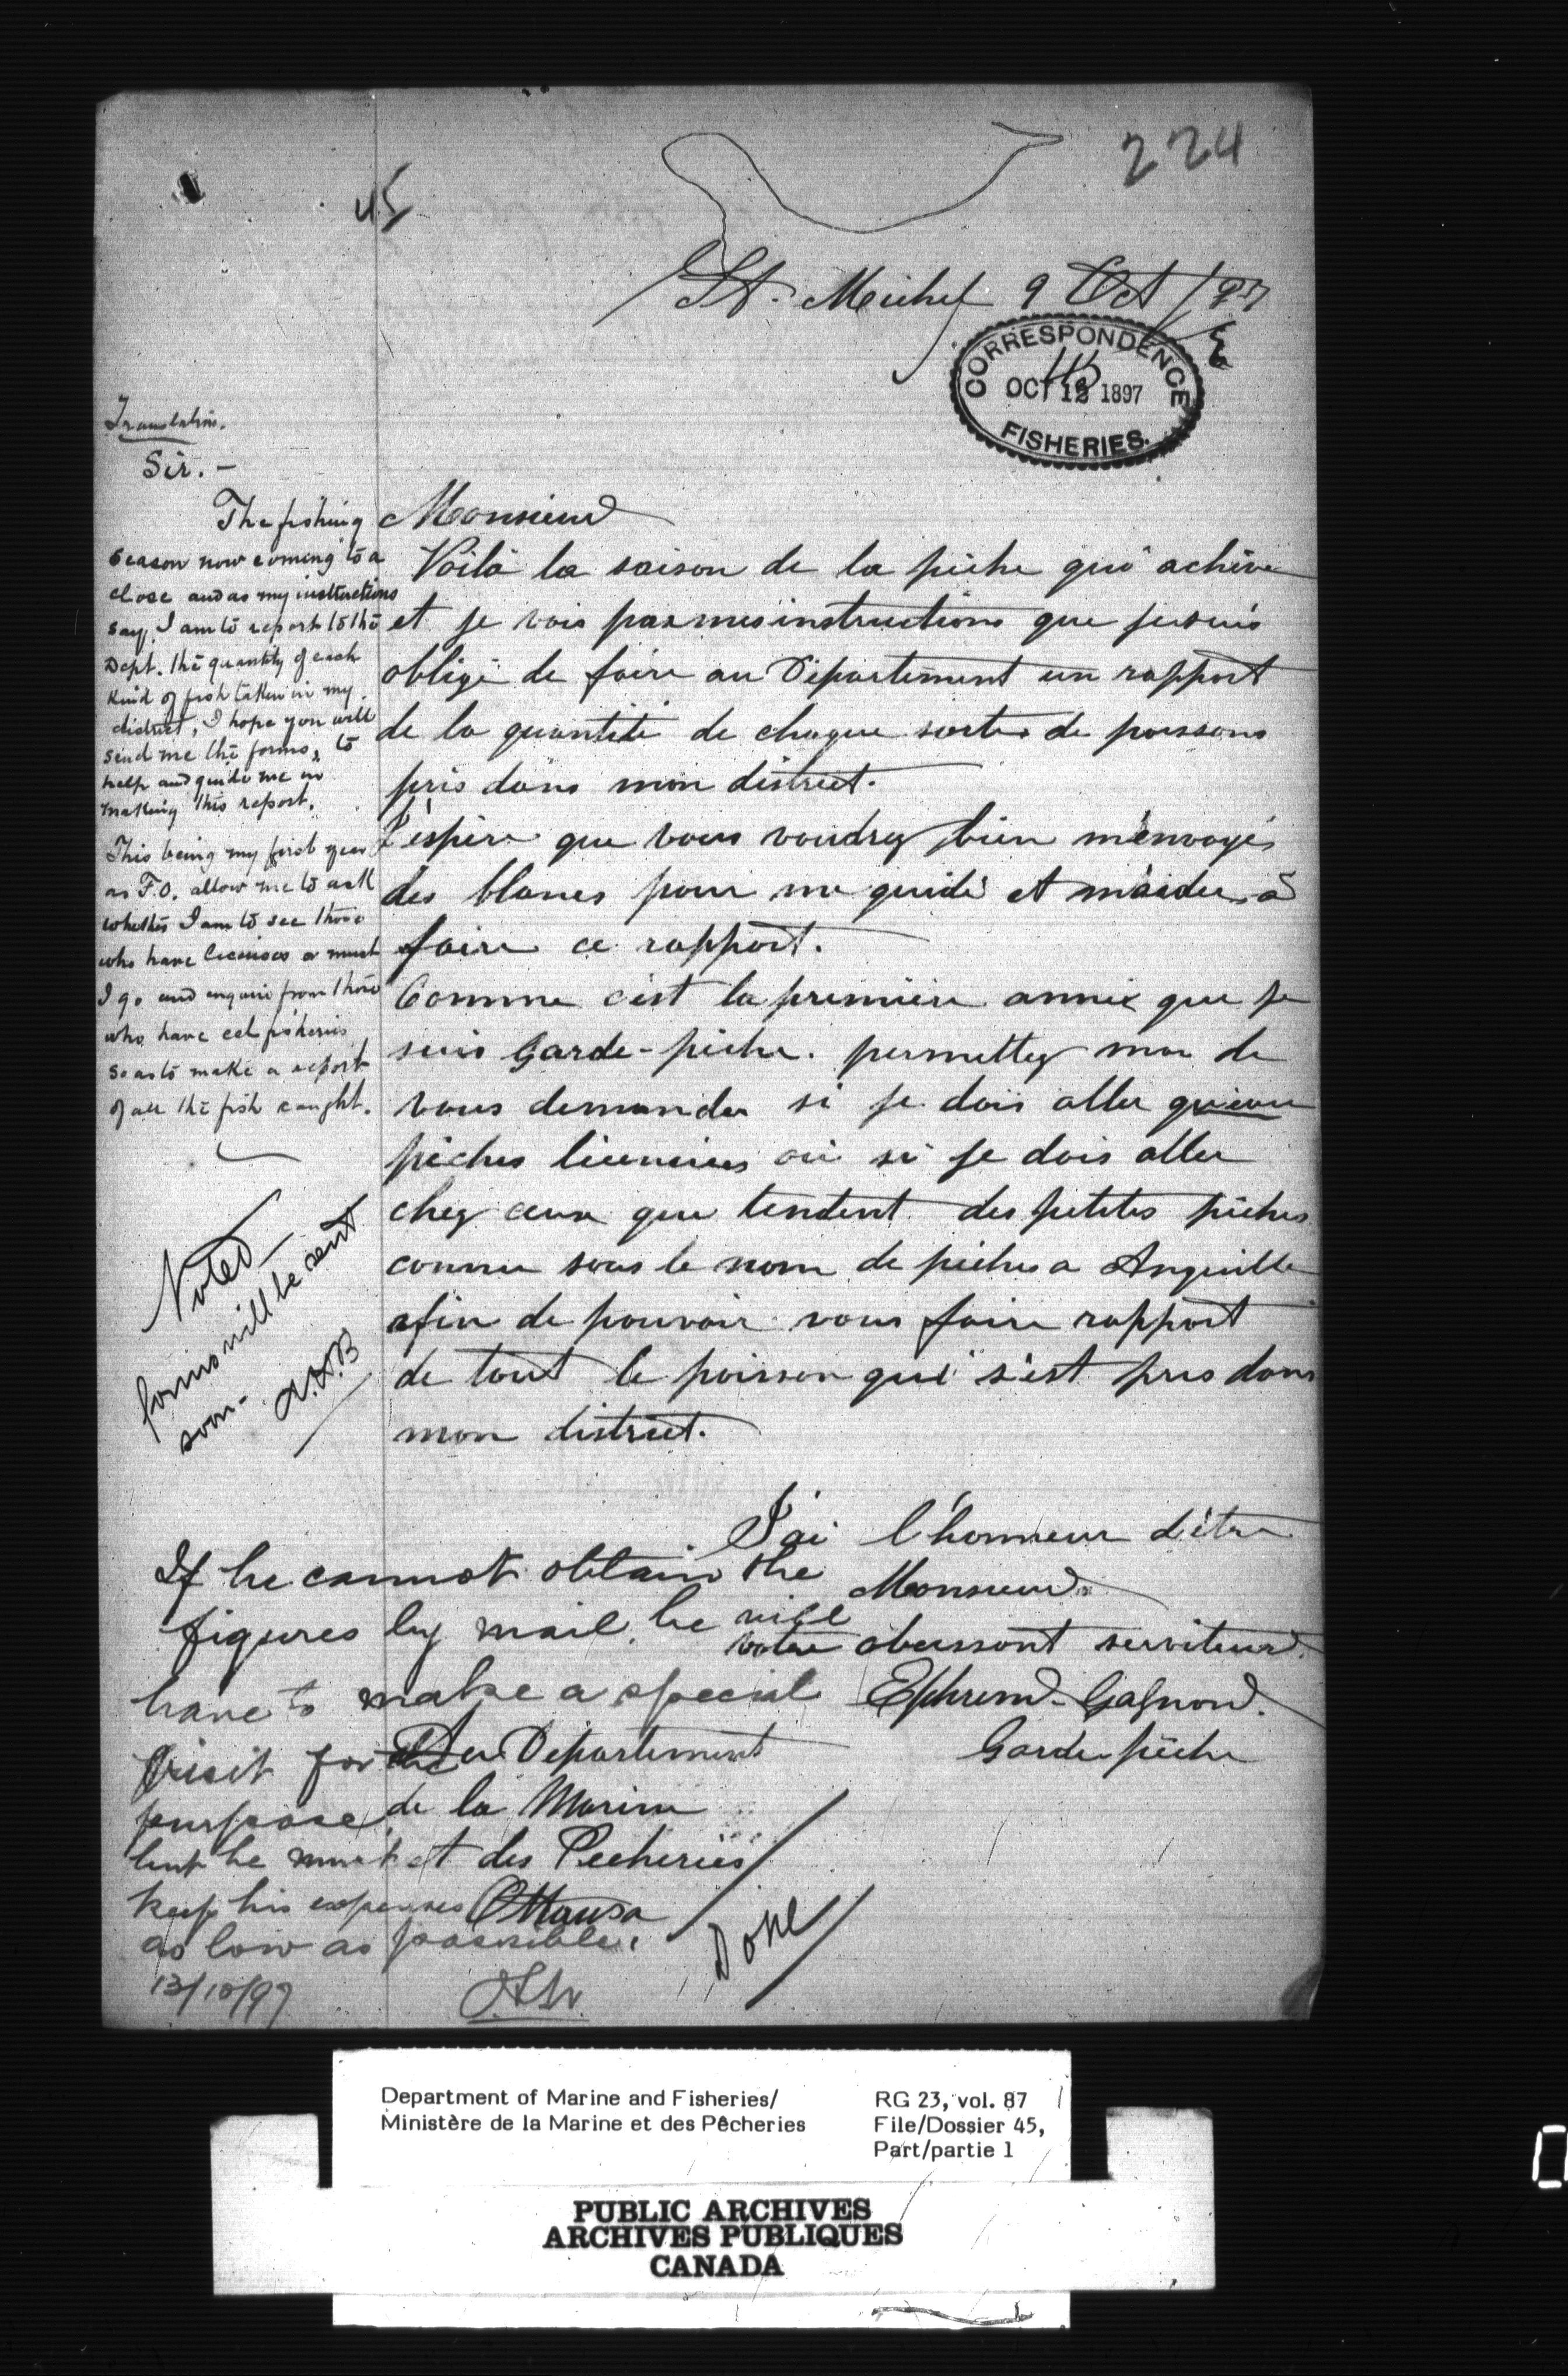 224
45
St. Michel 9 Oct /97
CORRESPONDENCE
OCT 12 1897
FISHERIES.
Translation.
Sir. -
The fishing
season now coming to a
close and as my instructions
say, I am to report to the
Dept. the quantity of each
kind of fish taken in my
district, I hope you will
send me the forms, to
help and guide me in
making this report.
This being my first year
as F.O. allow me to ask
whether I am to see those
who have licenses or must
I go and enquire from those
who have eel fisheries
so as to make a report
of all the fish caught.
Noted
forms will be sent
soon -
Monsieur
Voilà la saison de la pêche qui achève
et je vois par mes instructions que je suis
obligé de faire au Département un rapport
de la quantité de chaque sorte de poissons
pris dans mon district.
J'espère que vous voudrez bien m'envoyés
des blancs pour me guidé et m'aider à
faire ce rapport.
Comme c'est la première année que je
suis Garde-pêche. permettez moi de
vous demander si je dois aller qu'aux
pêches licenciées ou si je dois aller
chez ceux que tendent des petites pêches
connu sous le nom de pêches a Anguille
afin de pouvoir vous faire rapport
de tout le poisson qui s'est pris dans
mon district.
J'ai l'honneur d'être
Monsieur
votre obeissant serviteur
Ephrem Gagnon.
Garde pêche
Au Département
de la Marine
et des Pecheries
Ottawa
If he cannot obtain the
figures by mail, he will
have to make a special
visit for the
purpose,
but he must
keep his expenses
as low as possible.
13/10/97
Done
Department of Marine and Fisheries/
Ministère de la Marine et des Pêcheries
RG 23, vol. 87
File/Dossier 45,
Part/partie 1
PUBLIC ARCHIVES
ARCHIVES PUBLIQUES
CANADA